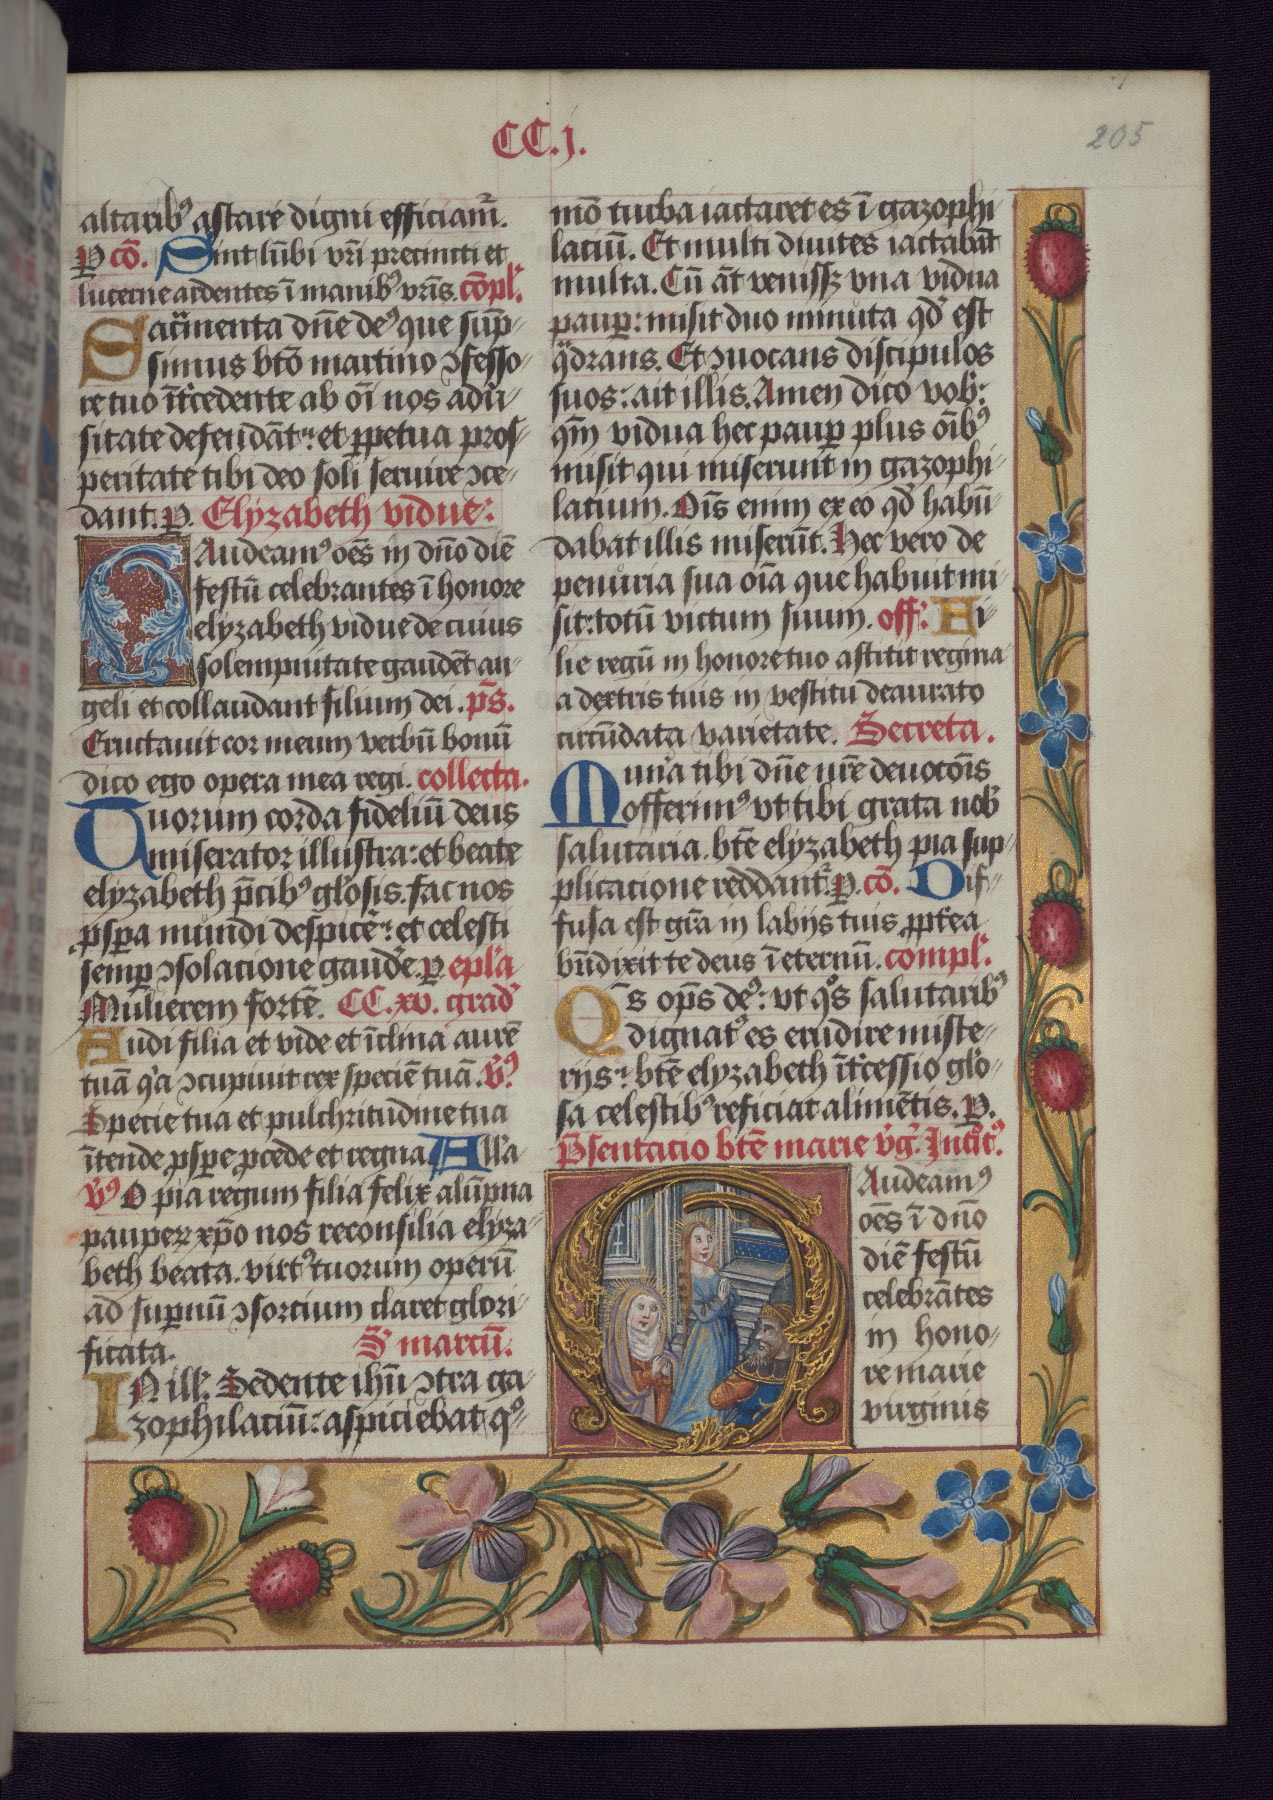 CC.j.
205
altarib⁹ astare digni efficiam̃.
P̲ cō. Sint lūbi vr̄i precincti et
lucerne ardentes ī manib⁹ vr̄is. cōpl'.
Sacr̄menta dn̄e de⁹ que sūp-
simus btō martino ɔfesso-
re tuo īt'cedente ab oī nos adū'-
sitate defendāt^r: et p̲petua pros-
peritate tibi deo soli seruire ɔce-
dant. p̲. Elyzabeth vidue:
GAudeam⁹ oēs in dn̄o diē
festū celebrantes ī honore
elyzabeth vidue de cuius
solempnitate gaudēt an-
geli et collaudant filium dei. ps̄.
Eructauit cor meum verbū bonū
dico ego opera mea regi. collecta.
Tuorum corda fideliū deus
miserator illustra: et beate
elyzabeth p̄cib⁹ gl'osis. fac nos
ꝓsp̲a mundi despicē^r: et celesti
semp̲ ɔsolacione gaude'. p̲ epl'a
Mulierem fortē. CC.xv. grad⁹
Audi filia et vide et īclina aurē
tuā q'a ɔcupiuit rex speciē tuā. v̓⁹
Specie tua et pulchritudine tua
ītende ꝓsp̲e ꝓcede et regna. All'a
v̓⁹ O pia regum filia felix alūpna
pauperꝝ xp̄o nos reconsilia elyza-
beth beata. virt⁹ tuorum operū
ad sup̲nū ɔsortium claret glori-
ficata. S' marcū.
IN ill'. Sedente ihū ɔtra ga-
zophilaciū: aspiciebat q°-
mō turba iactaret es ī gazophi-
laciū. Et multi diuites iactabāt
multa. Cū āt venissꝫ vna vidua
paup̲: misit duo minuta qd' est
q^adrans. Et ɔuocans discipulos
suos: ait illis. Amen dico vob':
qm̄ vidua hec paup̲ plus oīb⁹
misit qui miserunt in gazophi-
latium. Oīs enim ex eo qd' habū-
dabat illis miserūt. Hec vero de
penuria sua oīa que habuit mi-
sit: totū victum suum. off': Fi-
lie regū in honore tuo astitit regina
a dextris tuis in vestitu deaurato
circūdata varietate. Secreta.
Mun'a tibi dn̄e nr̄e deuocōis
offerim⁹ vt tibi grata nob'
salutaria. btē elyzabeth pia sup-
plicatione reddant^r. p̲. cō. Dif-
fusa est gr̄a in labijs tuis ꝓpt'ea
bn̄dixit te deus ī eternū. compl'.
Qs̄ op̄s de⁹: vt q°s salutarib⁹
dignat⁹ es erudire miste-
rijs^r: btē elyzabeth īt'cessio gl'o-
sa celestib⁹ reficiat alimētis. P̲.
P̄sentacio btē marie v̓g'. Introit⁹.
GAudeam⁹
oēs ī dn̄o
diē festū
celebrātes
in hono-
re marie
virginis